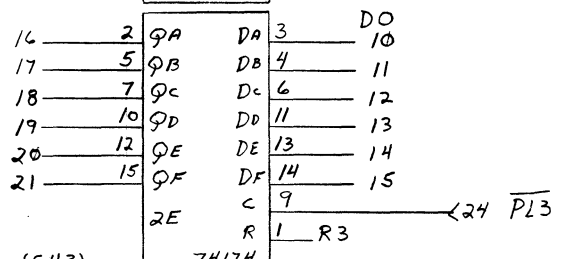 DO
16 2 QA DA 3 10
17 5 QB DB 4 11
18 7 QC DC 6 12
19 10 QD DD 11 13
20 12 QE DE 13 14
21 15 QF DF 14 15
C 9 24 PL3
2E R 1 R3
74174